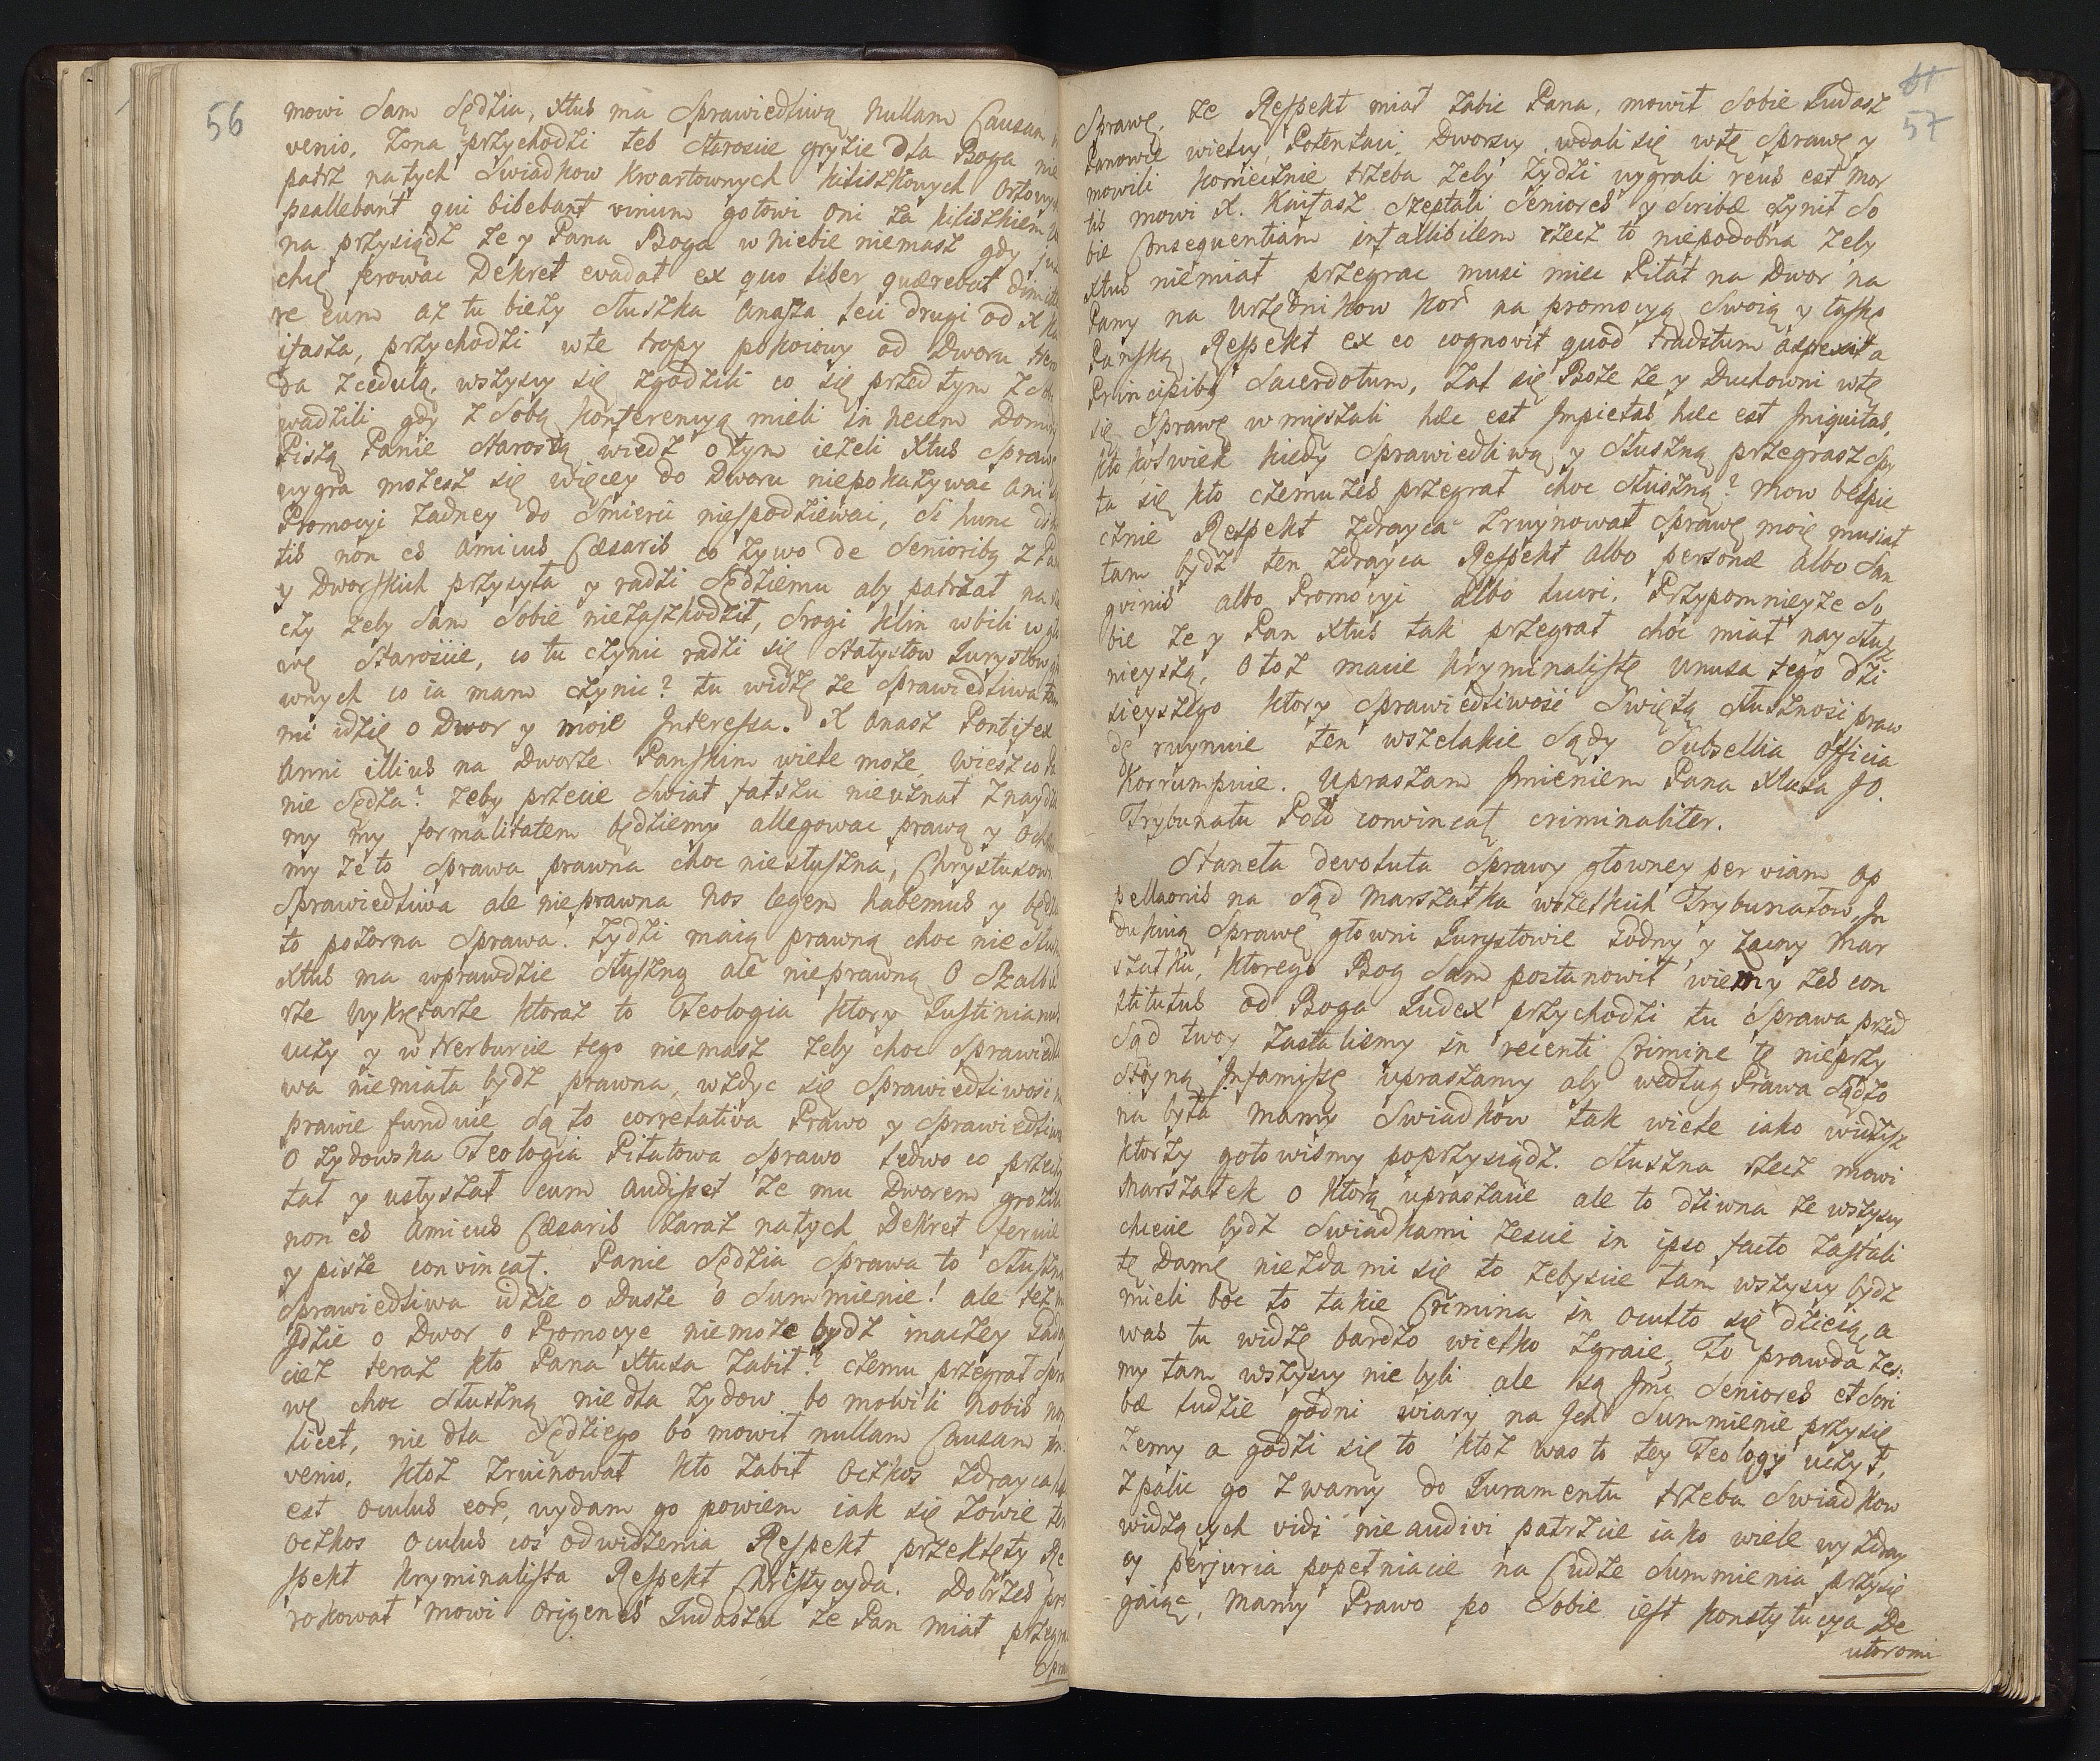 56
mowi Sam Sędzia, Xtus ma Sprawiedliwą Nullam Causam
venio, Zona przychodzi łeb Staroscie gryzie dla Boga nie
patrz na tych Swiadkow kwartownych kiliszkowych
psallebant qui bibebant vinum gotowi oni za kiliszkiem
na przysiądz ze y Pana Boga w niebie niemasz gdy juz
chcę ferowac Dekret evadat ex quo liber quærebat dimitte
re eum az tu biezy Słuszka Anasza leci drugi od X Ka
ifasza, przychodzi w te tropy pokoiowy od Dworu Hero
da z cedułą, wszyscy się zgodzili co się przedtym
wadzili gdy z Sobą konferencyą mieli in necem Domini
Piszą Panie Starostą wiedz o tym iezeli Xtus Sprawę
wygra mozesz się więcey do Dworu niepokazywac ani
Promocyi zadney do Smierci niespodziewac, Si hunc dimit
tis non es Amicus Cæsaris co zywo de Senioribq z Pan
y Dworskich przysyła y radzi Sędziemu aby patrzał na
czy zeby Sam Sobie niezaszkodził, Srogi klin wbili w gło
wę Staroscie, co tu czynic radzi się Statystow Jurystow
wnych co ia mam czynic? tu widzę ze Sprawiedliwa tam
mi idzię o Dwor y moie Interessa. X Anasz Pontifex
Anni illius na Dworze Panskim wiele moze, wiesz co
nie Sędza? zeby przecie Swiat fałszu nieuznał znaydzie
my my formalitatem będziemy allegowac prawą y
my ze to Sprawa prawna choc niesłuszna, Chrystusowa
Sprawiedliwa ale nieprawna Nos legem habemus y będzie
to pozorna Sprawa. Zydzi maią prawną choc nie Słuszną
Xtus ma wprawdzie Słuszną ale nieprawną O Szalbie
rze Wykrętarze ktoraz to Teologia ktory Justinianus
uczy y w Herburcie tego niemasz zeby choc Sprawiedli
wa niemiała bydz prawna, wzdyc się Sprawiedliwosc na
prawie funduie Są to correlativa Prawo y Sprawiedliwosc
O Zydowska Teologia Piłatowa Sprawo ledwo co przeczy
tał y usłyszał cum audisset ze mu Dworem grozili
non es Amicus Cæsaris zaraz natych Dekret feruie
y pisze convincat. Panie Sędzia Sprawa to Słuszna
Sprawiedliwa idzie o Dusze o Summienie! ale tez mi
Jdzie o Dwor o Promocye niemoze bydz inaczey Zada
ciez teraz kto Pana Xtusa zabił? czemu przegrał Spra
wę choc Słuszną nie dla Zydow bo mowili nobis non
licet, nie dla Sędziego bo mowił nullam Causam in
venio, ktoz zruinował kto zabił Oczkos zdrayca
est oculus eor, wydam go powiem iak się zowie ten
Oczkos Oculus cos od widzenia Respekt przeklęty Re
spekt Kryminalista Respekt Christycyda. Dobrzes pro
rokował mowi Origenes Judaszu ze Pan miał przegrac
Spraw

61
57
Sprawę, ze Respekt miał zabic Pana, mowił Sobie Judasz
Panowie wielcy, Potentaci, Dworscy wdali się w tę Sprawę y
mowili koniecznie trzeba zeby Zydzi wygrali reus est mor
tis mowi X. Kaifasz Szeptali Seniores y Scribæ czynił So
bie Consequentiam infallibilem rzecz to niepodobna zeby
Xtus niemiał przegrac musi miec Piłat na Dwor na
Pany na Urzędnikow kor na promocyą Swoią y łaskę
Panską Respekt ex eo cognovit quod traditum aspexit a
Principibq Sacerdotum, zal się Boze ze y Duchowni w tę
się Sprawę wmięszali hæc est Impietas hæc est Iniquitas,
ktokolwiek kiedy Sprawiedliwą y Słuszną przegrasz Spy
ta się kto czemuzes przegrał choc Słuszną? mow bespie
cznie Respekt zdrayca zruynował Sprawę moię musiał
tam bydz ten zdrayca Respekt albo personæ albo San
gvinis albo Promocyi albo lucri. Przypomnieyze So
bie ze y Pan Xtus tak przegrał choc miał naysłusz
nieyszą, Otoz macie kryminalistę unusa tego dzi
sieyszego ktory Sprawiedliwosc Swiętą Słusznosc praw
dę ruynuie ten wszelakie Sądy Subsellia Officia
Korrumpuie. Upraszam Imieniem Pana Xtusa JO.
Trybunału Pold convincat criminaliter.
Stanęła devoluta Sprawy głowney per viam ap
pellaonis na Sąd Marszałka wszelkich Trybunałow, In
dukuią Sprawę głowni Jurystowie Godny y Zacny Mar
szałku, ktorego Bog Sam postanowił wiemy zes con
stitutus od Boga Judex przychodzi tu Sprawa przed
Sąd twoy zastalismy in recenti Crimine tę nieprzy
stoyną Infamissę upraszamy aby według Prawa Sądzo
na była Mamy Swiadkow tak wiele iako widzisz
ktorzy gotowismy poprzysiądz. Słuszna rzecz mowi
Marszałek o ktorą upraszacie ale to dziwna ze wszyscy
chcecie bydz Swiadkami zescie in ipso facto zastali
tę Damę niezda mi się to zebyscie tam wszyscy bydz
mieli boc to takie Crimina in oculto się dzieią, a
was tu widzę bardzo wielko zgraię, To prawda zes:
my tam wszyscy nie byli ale są Jmc Seniores et Scri
bæ ludzie godni wiary na Jch Summienie przysię
zemy a godzi się to ktoz was to tey Teologij uczył,
Zpalic go z wamy do Juramentu trzeba Swiadkow
widzących vidi nie audivi patrzcie iako wiele wy zdray
cy perjuria popełniacie na Cudze Summienia przysię
gaiąc, Mamy Prawo po Sobie iest konstytucya De
uteromi